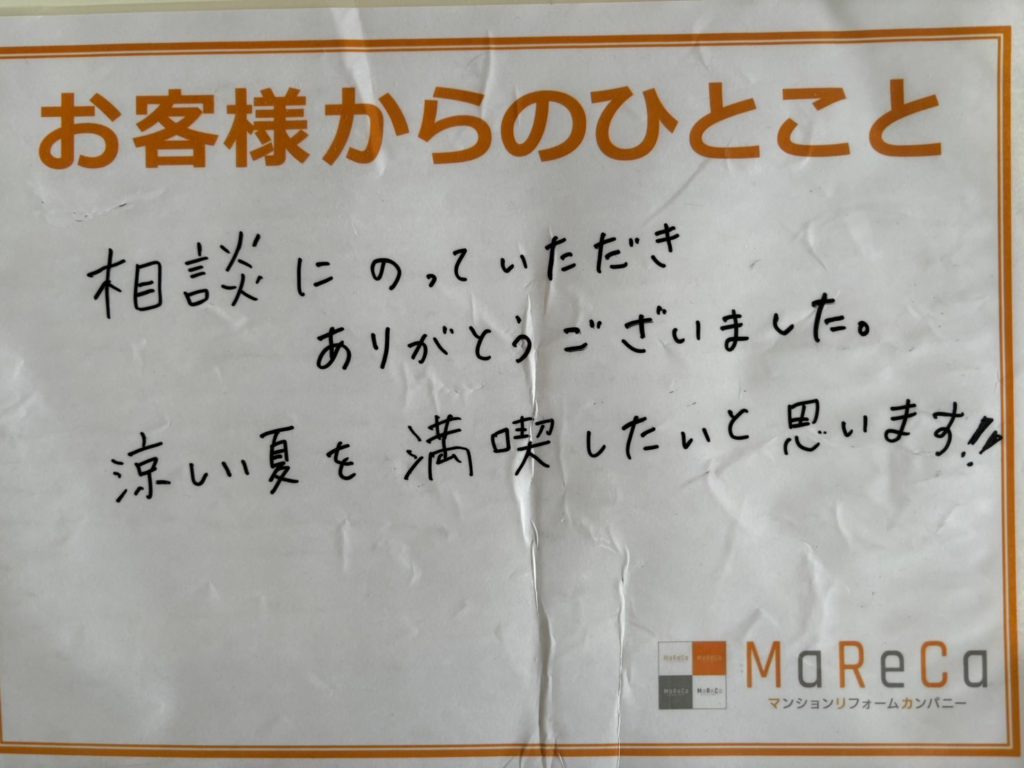 お客様からのひとこと
相談にのっていただき
ありがとうございました。
涼しい夏を満喫したいと思います!!
MaReCa MaReCa
MaReCa MaReCa
MaReCa
マンションリフォームカンパニー